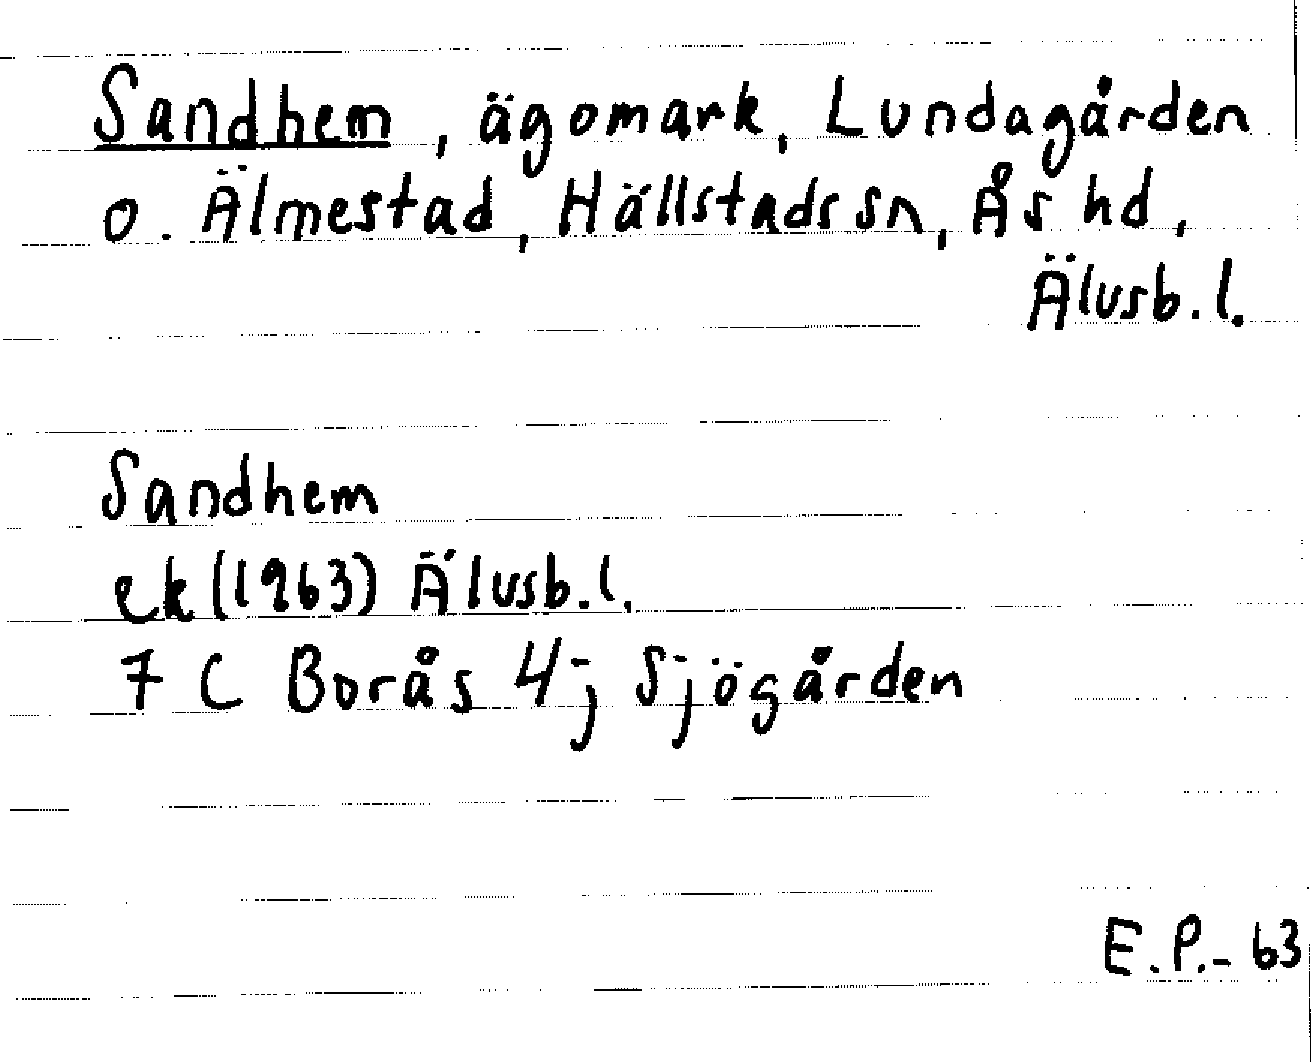 Sandhem, ägomark, Lundagården
o. Älmestad, Hällstads sn, Ås hd,
Älvsb. l.
Sandhem
ek (1963) Älvsb. l.
7 C Borås 4 j Sjögården
E. P. - 63